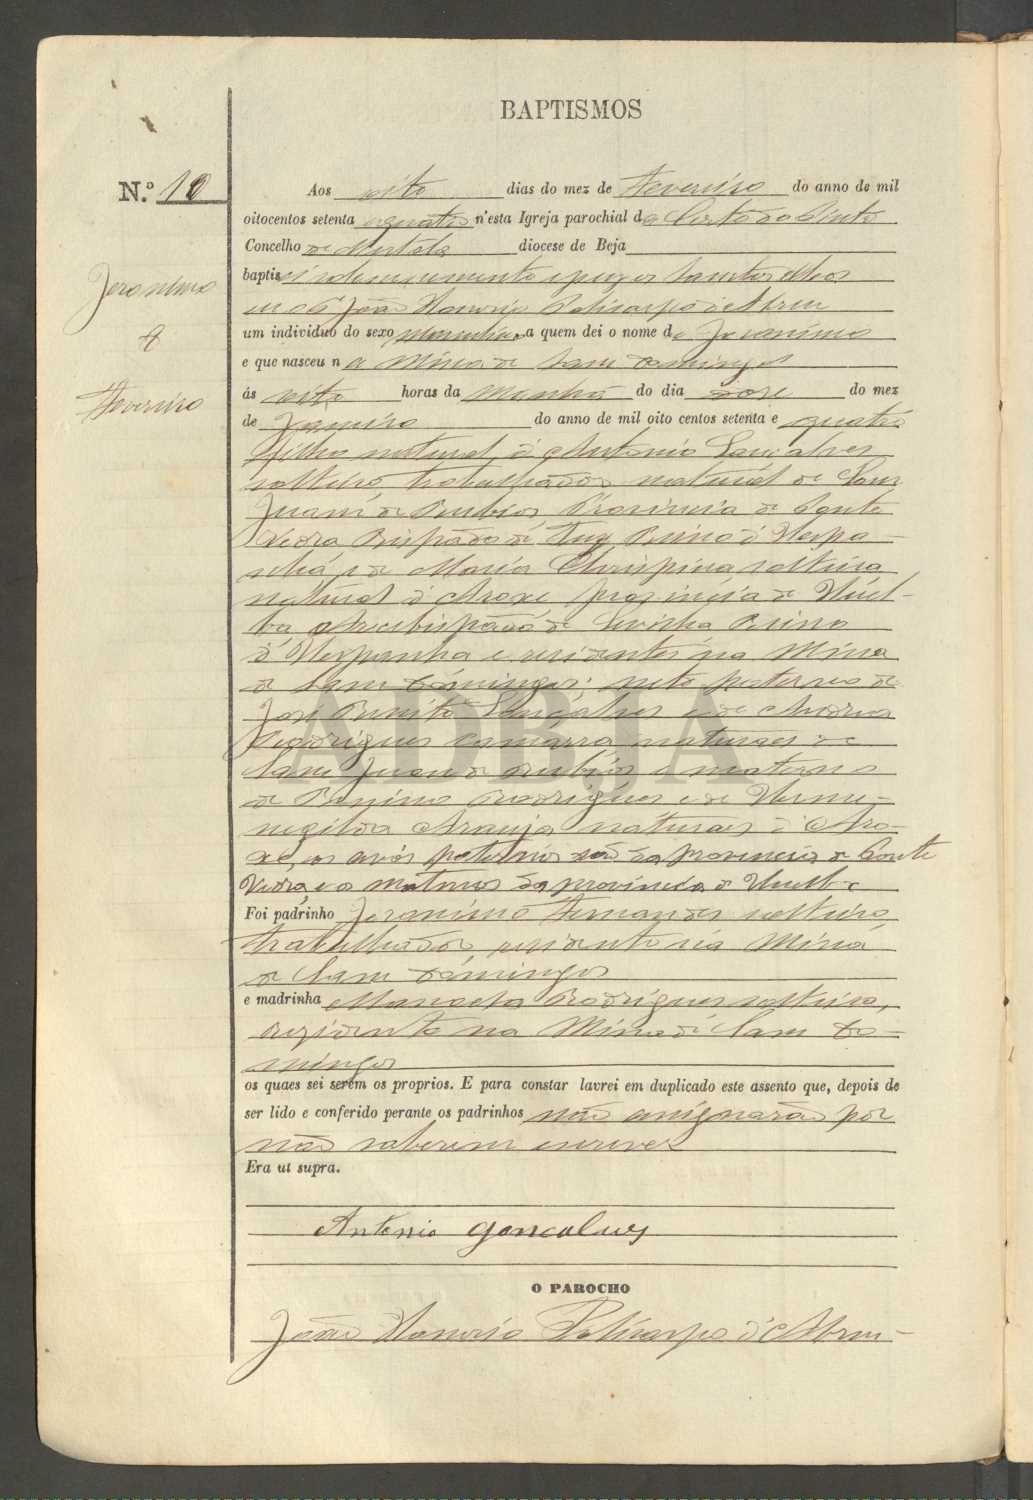 BAPTISMOS
N.º 10
Jeronimo
Fevereiro
Aos oito dias do mez de Fevereiro do anno de mil
oitocentos setenta e quatro n'esta Igreja parochial de Corte do Pinto
Concelho de Mertola diocese de Beja
baptisei solemnemente e puz os Santos Oleos
eu o P.e João Honorio Policarpo d'Abreu
um individuo do sexo masculino a quem dei o nome de Jeronimo
e que nasceu na Mina de Sam Domingos
ás oito horas da Manhã do dia doze do mez
de Janeiro do anno de mil oito centos setenta e quatro
filho natural d'Antonio Goncalves
solteiro, trabalhador natural de Sam
Juam de Rubios Provincia de Ponte
Vedra Bispado de Tuy Reino d'Hespa-
nha, e de Maria Chrispina, solteira
natural d'Aroxe provincia de Huel-
va Arcebispado de Sevilha Reino
d'Hespanha e residentes na Mina
de Sam Domingos; neto paterno de
José Benito Gonçalves e de Andrea
Rodrigues naturaes de
Sam Juam de Rubios e materno
de Rodrigues e de Herme-
negilda Araujo naturaes d'Aro-
xe, os avós paternos são da provincia de Ponte
Vedra, e os maternos da provincia d'Huelva
Foi padrinho Jeronimo Fernandes solteiro
trabalhador, residente na Mina
de Sam Domingos
e madrinha Manoela Rodrigues solteira,
rezidente na Mina de Sam Do-
mingos
os quaes sei serem os proprios. E para constar lavrei em duplicado este assento que, depois de
ser lido e conferido perante os padrinhos não assignarão por
não saberem escrever
Era ut supra.
Antonio goncalves
O PAROCHO
João Honorio Policarpo d'Abreu
ADBJA